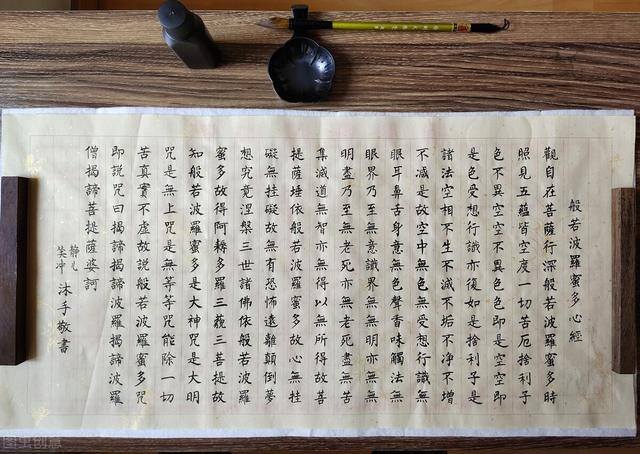 般若波羅蜜多心經
觀自在菩薩行深般若波羅蜜多時
照見五蘊皆空度一切苦厄捨利子
色不異空空不異色色即是空空即
是色受想行識亦復如是捨利子是
諸法空相不生不滅不垢不净不增
不減是故空中無色無受想行識無
眼耳鼻舌身意無色聲香味觸法無
眼界乃至無意識界無無明亦無無
明盡乃至無老死亦無老死盡無苦
集滅道無智亦無得以無所得故菩
提薩埵依般若波羅蜜多故心無挂
礙無挂礙故無有恐怖遠離顛倒夢
想究竟涅槃三世諸佛依般若波羅
蜜多故得阿耨多羅三藐三菩提故
知般若波羅蜜多是大神咒是大明
咒是無上咒是無等等咒能除一切
苦真實不虛故說般若波羅蜜多咒
即說咒曰揭諦揭諦波羅揭諦波羅
僧揭諦菩提薩婆訶
沐手敬書
图虫创意